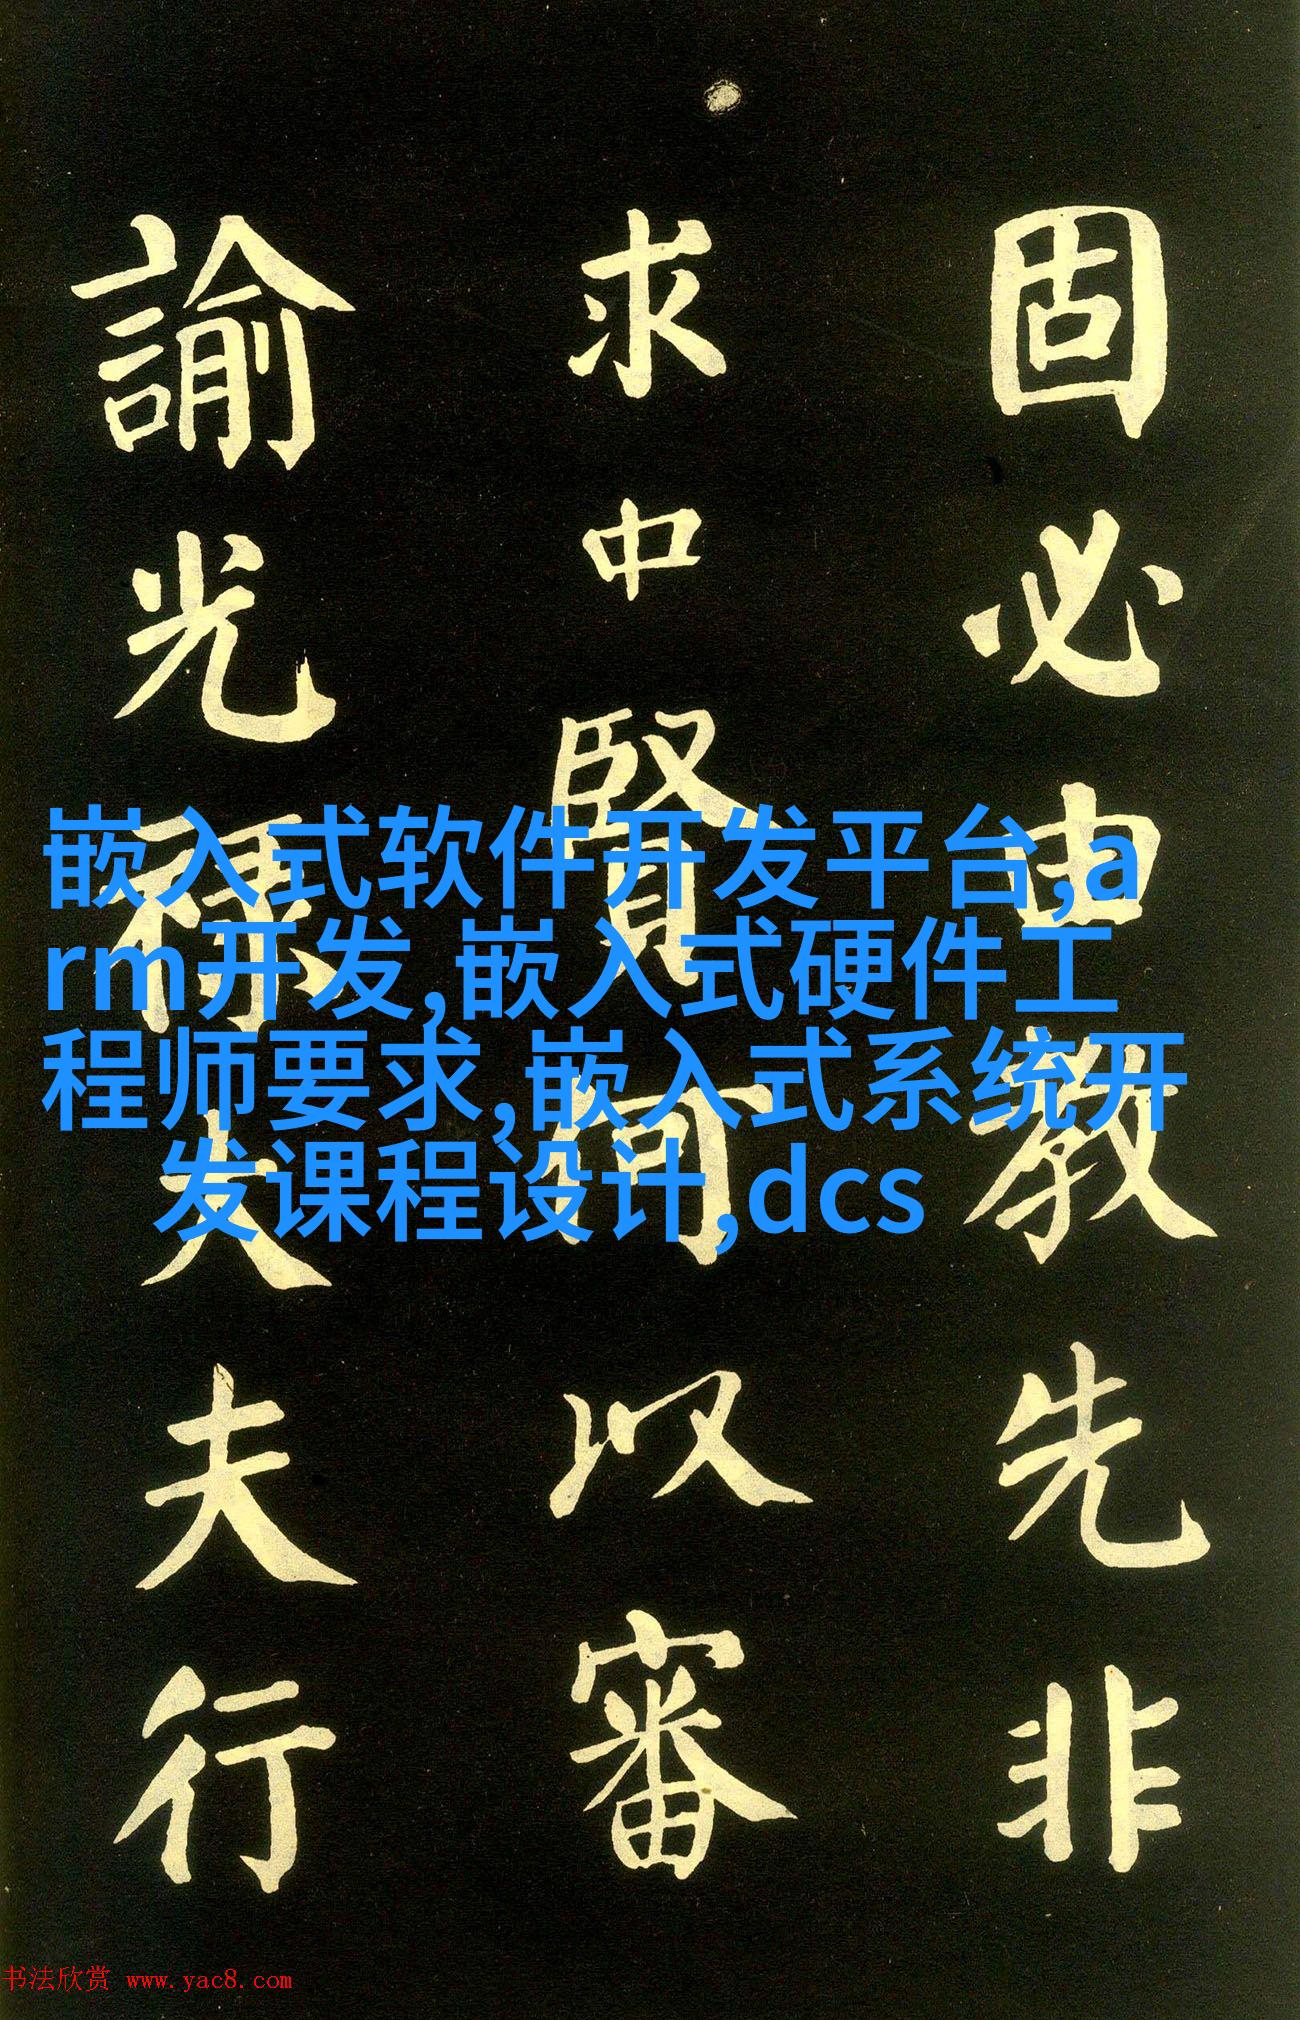 固必由教先非
求中賢何以審
諭光祿大夫行
嵌入式软件开发平台,a
rm开发,嵌入式硬件工
程师要求,嵌入式系统开
发课程设计,dcs
书法欣赏 www.yac8.com